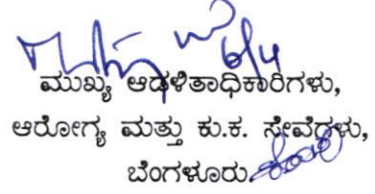 6/4
ಮುಖ್ಯ ಆಡಳಿತಾಧಿಕಾರಿಗಳು,
ಆರೋಗ್ಯ ಮತ್ತು ಕು.ಕ. ಸೇವೆಗಳು,
ಬೆಂಗಳೂರು.